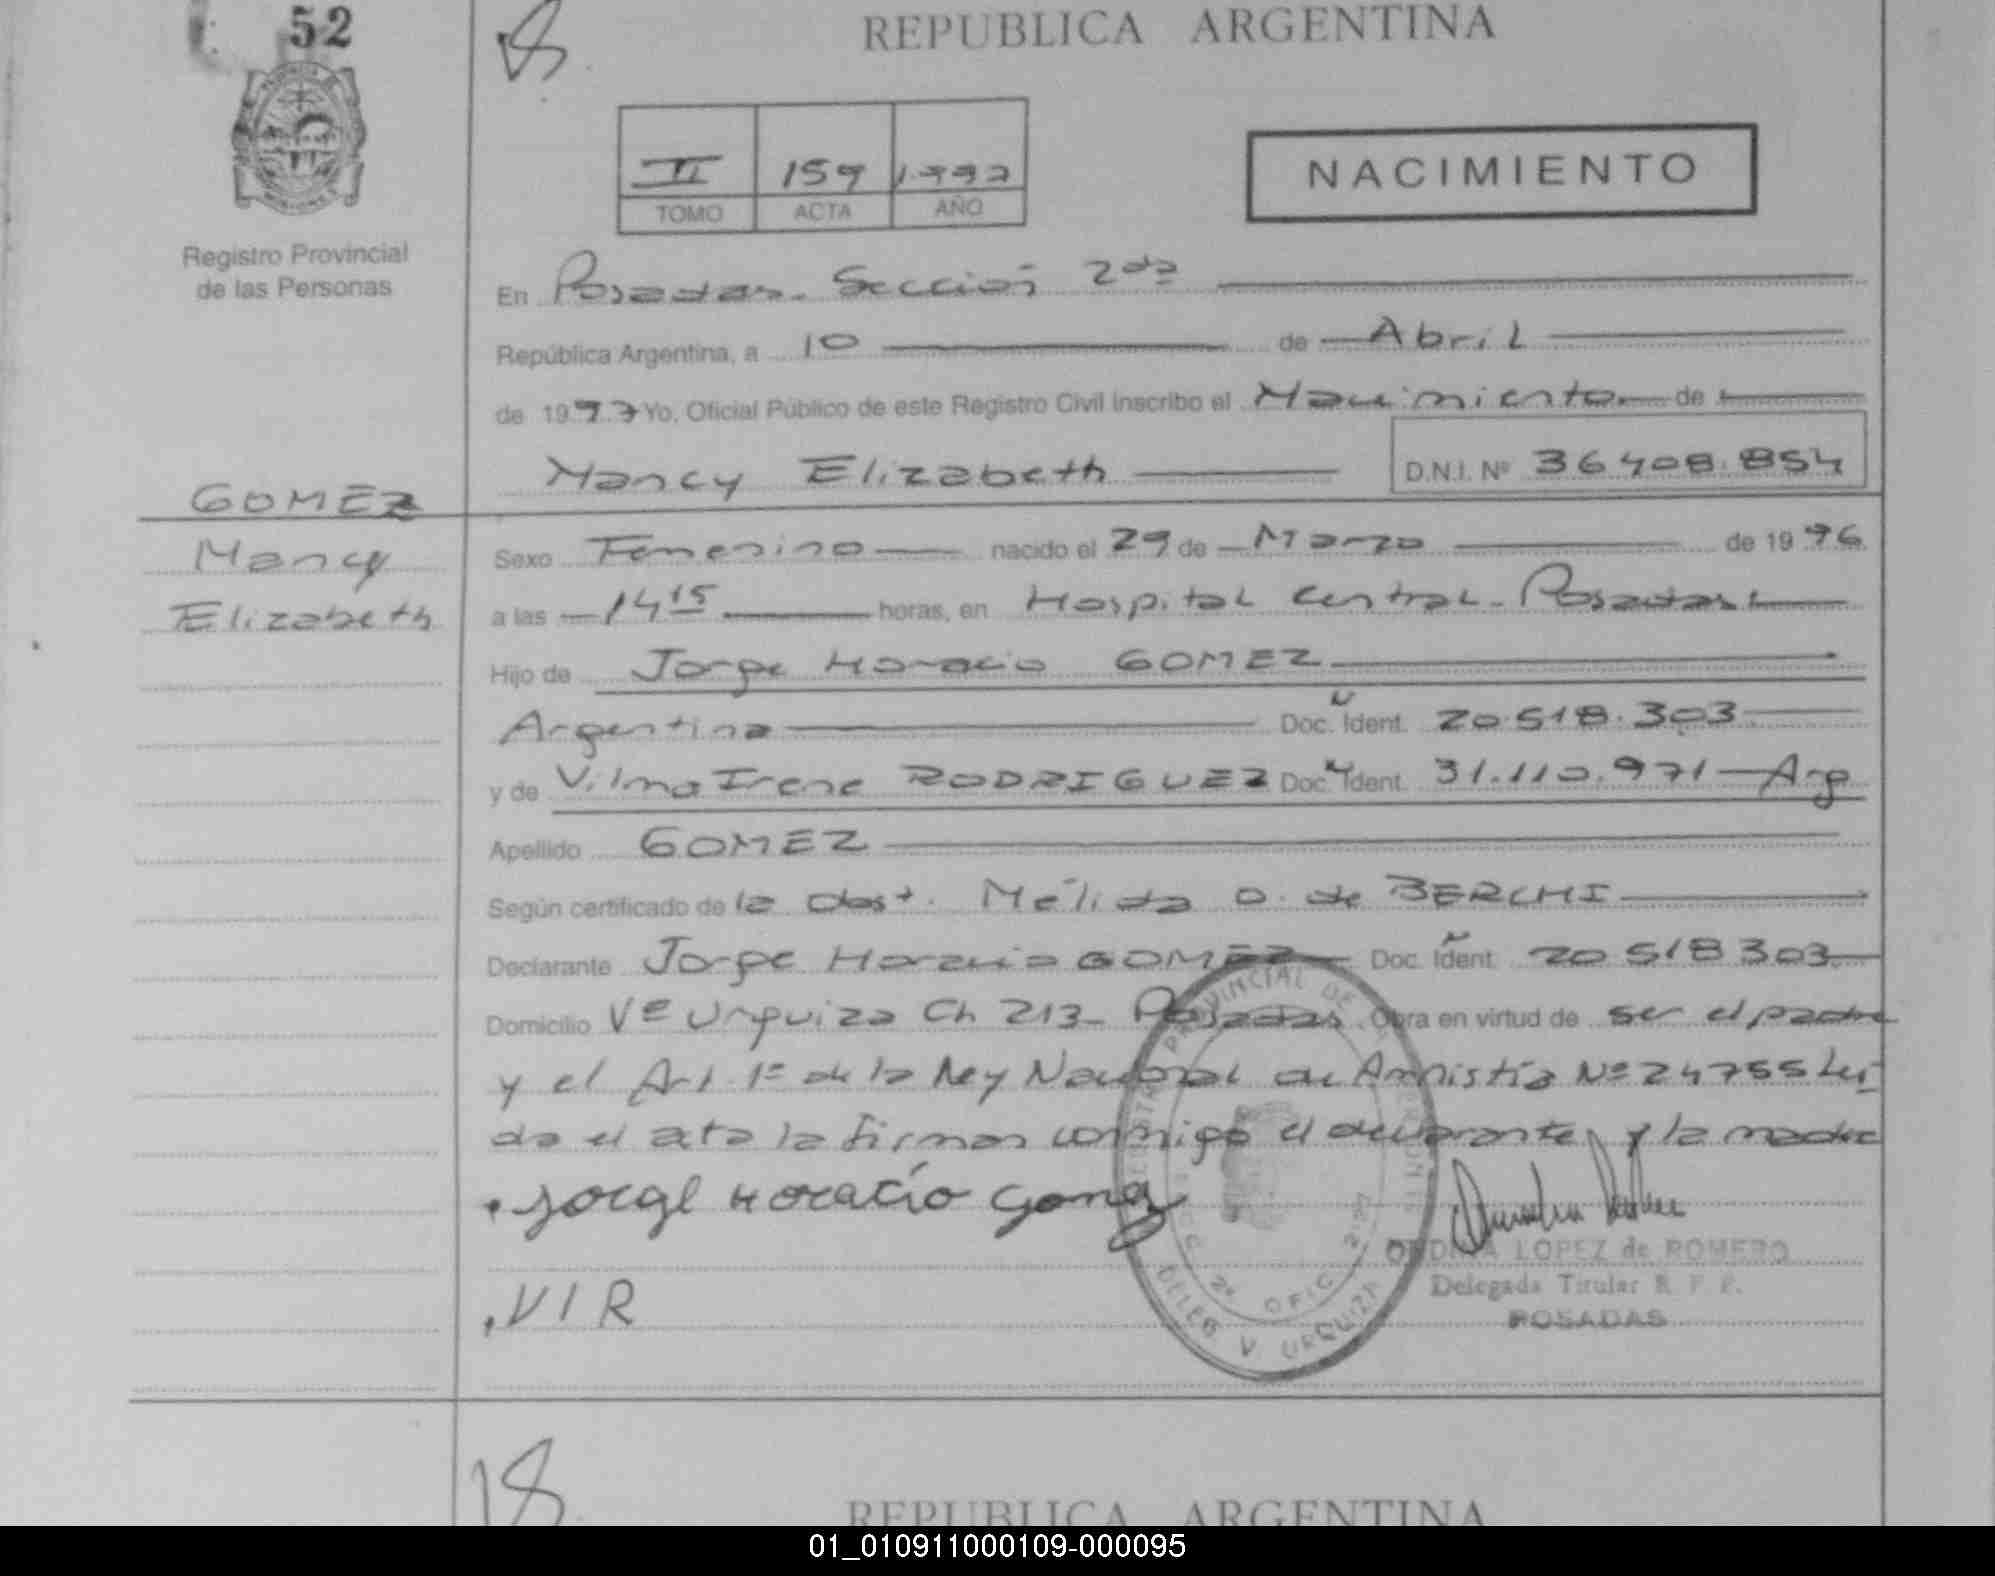 52
REPUBLICA ARGENTINA
II 159 1997
TOMO ACTA AÑO
NACIMIENTO
Registro Provincial
de las Personas
En Posadas. Sección 2da
República Argentina, a 10 de Abril
de 1997 Yo, Oficial Público de este Registro Civil inscribo el Nacimiento de
Nancy Elizabeth D.N.I. Nº 36.408.854
GOMEZ
Nancy
Elizabeth
Sexo Femenino nacido el 29 de Marzo de 1996
a las 14 15 horas, en Hospital Central. Posadas
Hijo de Jorge Horacio GOMEZ
Argentina Doc. Ident. 20.518.303
y de Vilma Irene RODRIGUEZ Doc. Ident. 31.110.971 Arg
Apellido GOMEZ
Según certificado de la Obst. Mélida O. de BERCHI
Declarante Jorge Horacio GOMEZ Doc. Ident. 20 518 303
Domicilio Vª Urquiza Ch 213 Posadas Obra en virtud de ser el padre
y el Art. 1º de la Ley Nacional de Amnistía Nº 24755 Leí
da el acta la firman conmigo el declarante y la madre
Jorge Horacio Gomez
LOPEZ de ROMERO
Delegada Titular R. P. P.
POSADAS
VIR
PROVINCIAL DE
SECC 2ª OFIC
DELEG V URQUIZA
18
REPUBLICA ARGENTINA
01_010911000109-000095